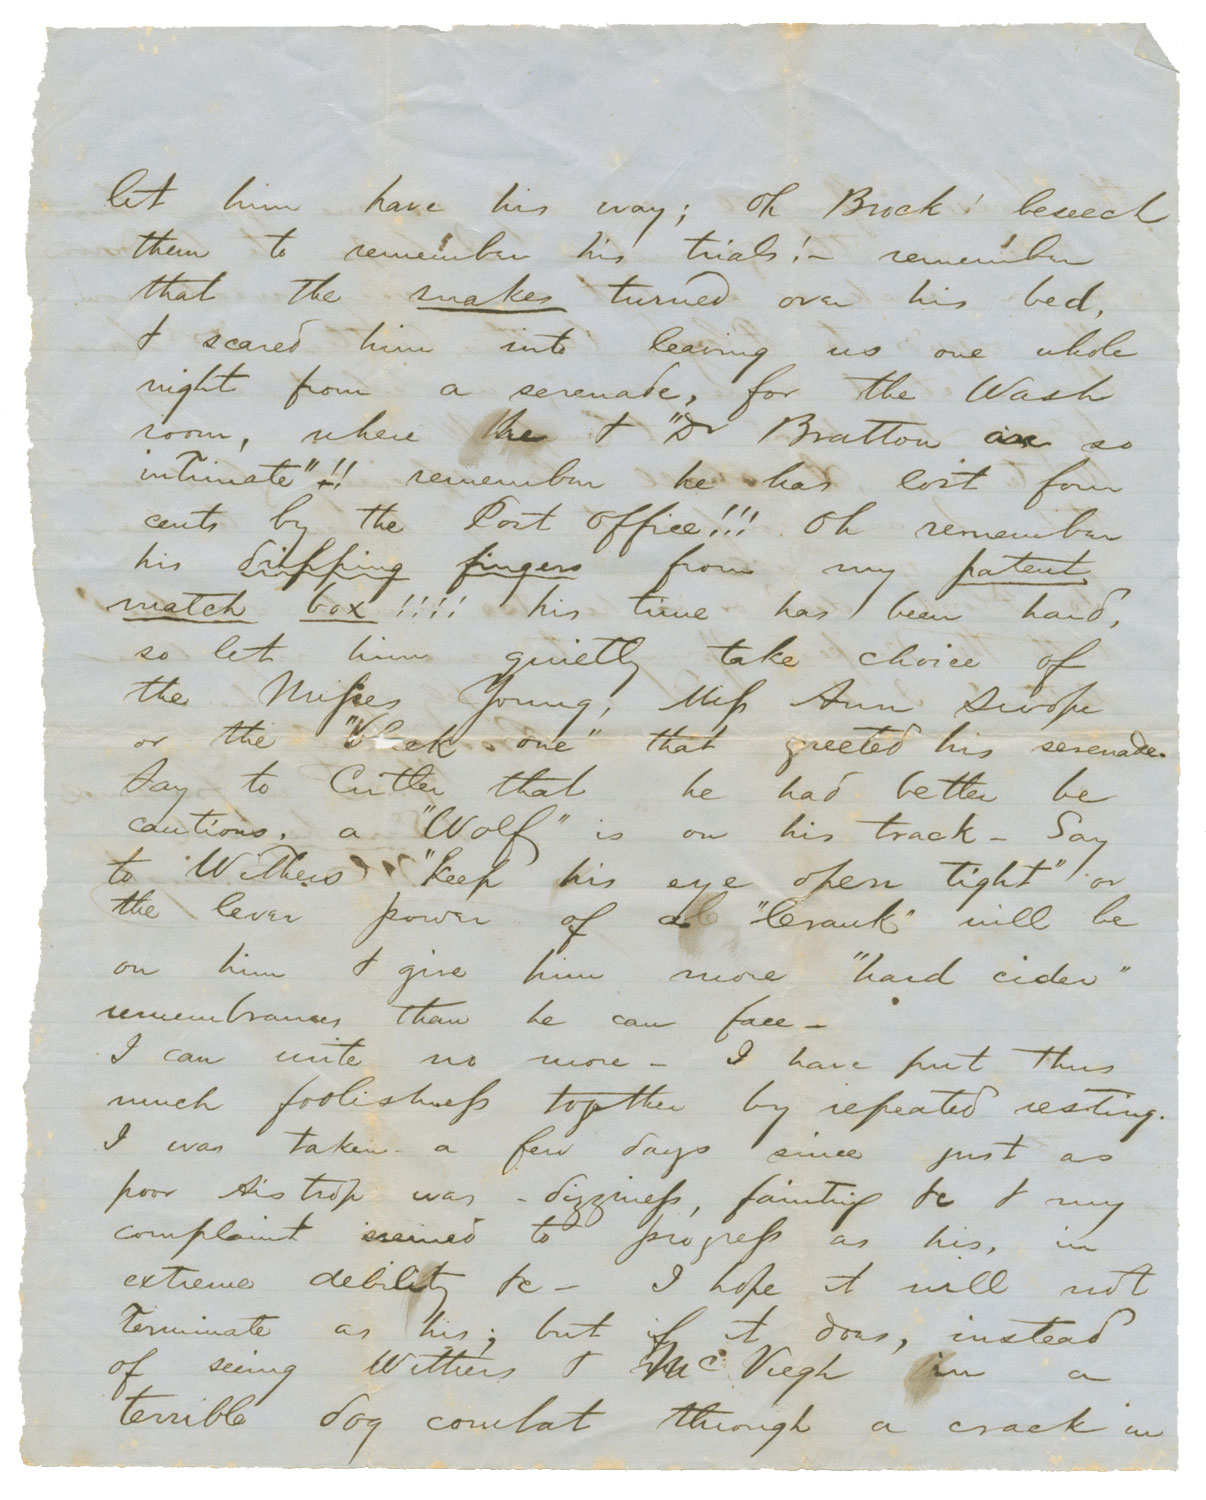 let him have his way; Oh Brock! beseech
them to remember his trials!- remember
that the snakes turned over his bed,
& scared him into leaving us one whole
night from a serenade, for the Wash
room, where he & "Dr Bratton are so
intimate"!! remember he has lost four
cents by the Post Office!!! Oh remember
his dripping fingers from my patent
match box!!!! his time has been hard,
so let him quietly take choice of
the Misses Young, Miss Ann Swope
or the "bleek one" that greeted his serenade.
Say to Cutler that he had better be
cautious, a "Wolf" is on his track - Say
to Withers "keep his eye open tight" or
the lever power of a "Crank" will be
on him & give him more "hard cider"
remembrances than he can face -
I can write no more - I have put thus
much foolishness together by repeated resting.
I was taken a few days since just as
poor Aistrop was - dizziness, fainting &c & my
complaint seemed to progress as his, in
extreme debility &c - I hope it will not
terminate as his; but if it does, instead
of seeing Withers & McViegh in a
terrible dog combat through a crack in